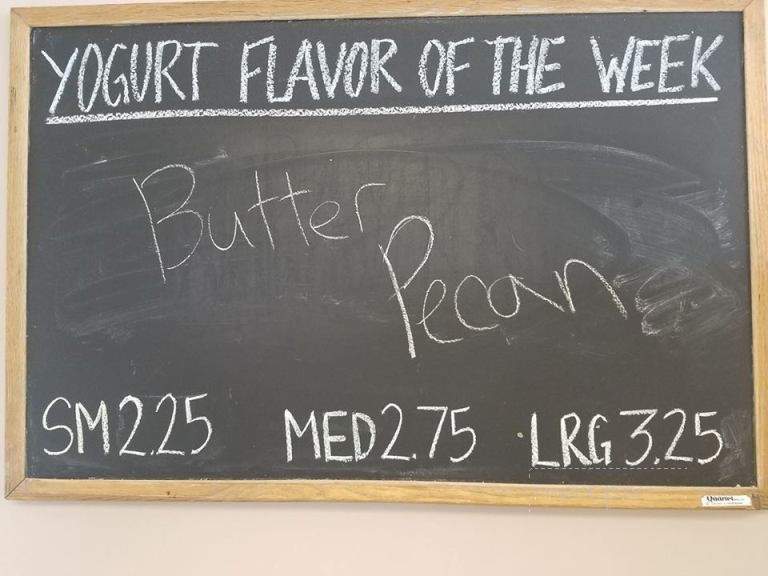 YOGURT FLAVOR OF THE WEEK
Butter
Pecan
SM 2.25 MED 2.75 LRG 3.25
Quartet